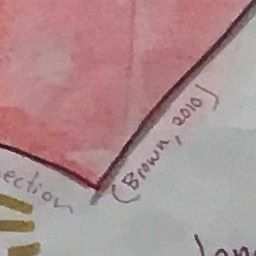 ection
(Brown, 2010)